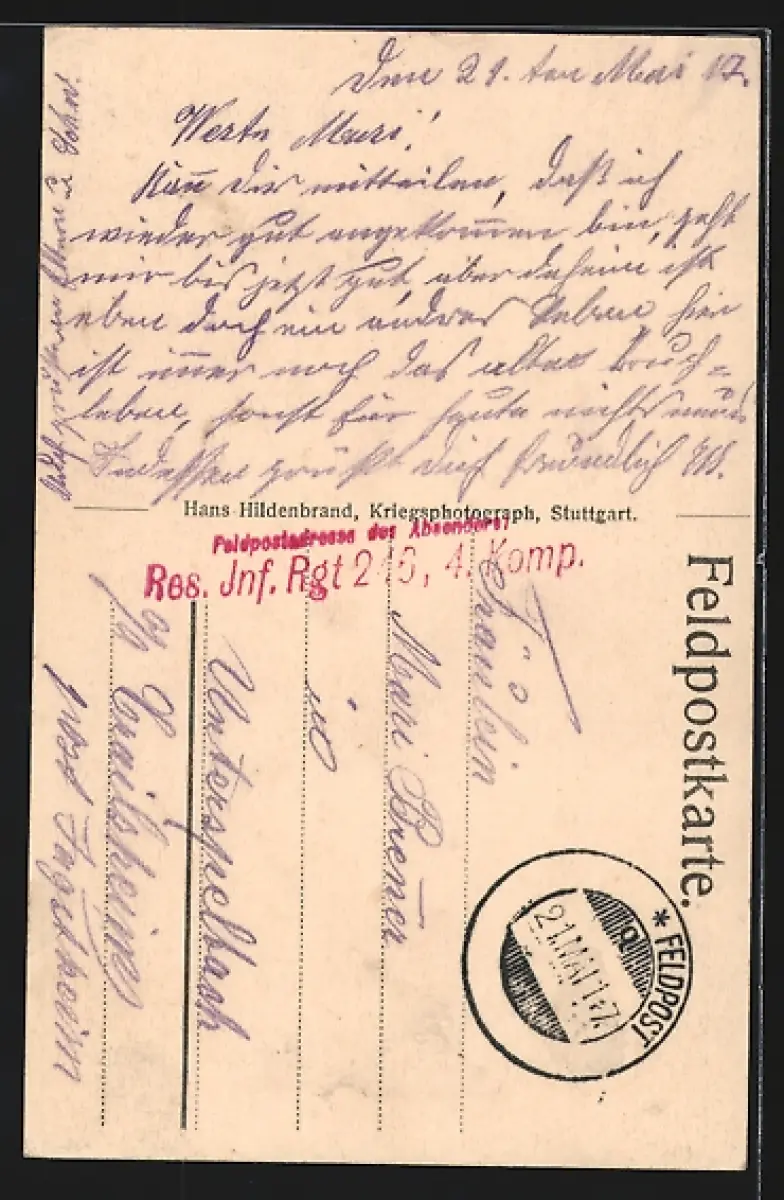 Den 21. ten Mai 17.
Werte Mari!
Kan̄ Dir mitteilen, daß ich
wieder gut angekom̄en bin, geht
mir bis jetzt gut, aber daheim ist
eben doch ein andres Leben, hier
ist im̄er noch das alte
leben, sonst für heute nichts neues
Indessen grüßt dich freundlich
Eltern u.
Hans Hildenbrand, Kriegsphotograph, Stuttgart.
Feldpostadresse des Absenders:
Res. Inf. Rgt 246, 4. Komp.
Feldpostkarte.
Fräulein
Mari Bren̄er
in
Unterspeltbach
Crailsheim
post Ingersheim
* FELDPOST
21 MAI 17
a